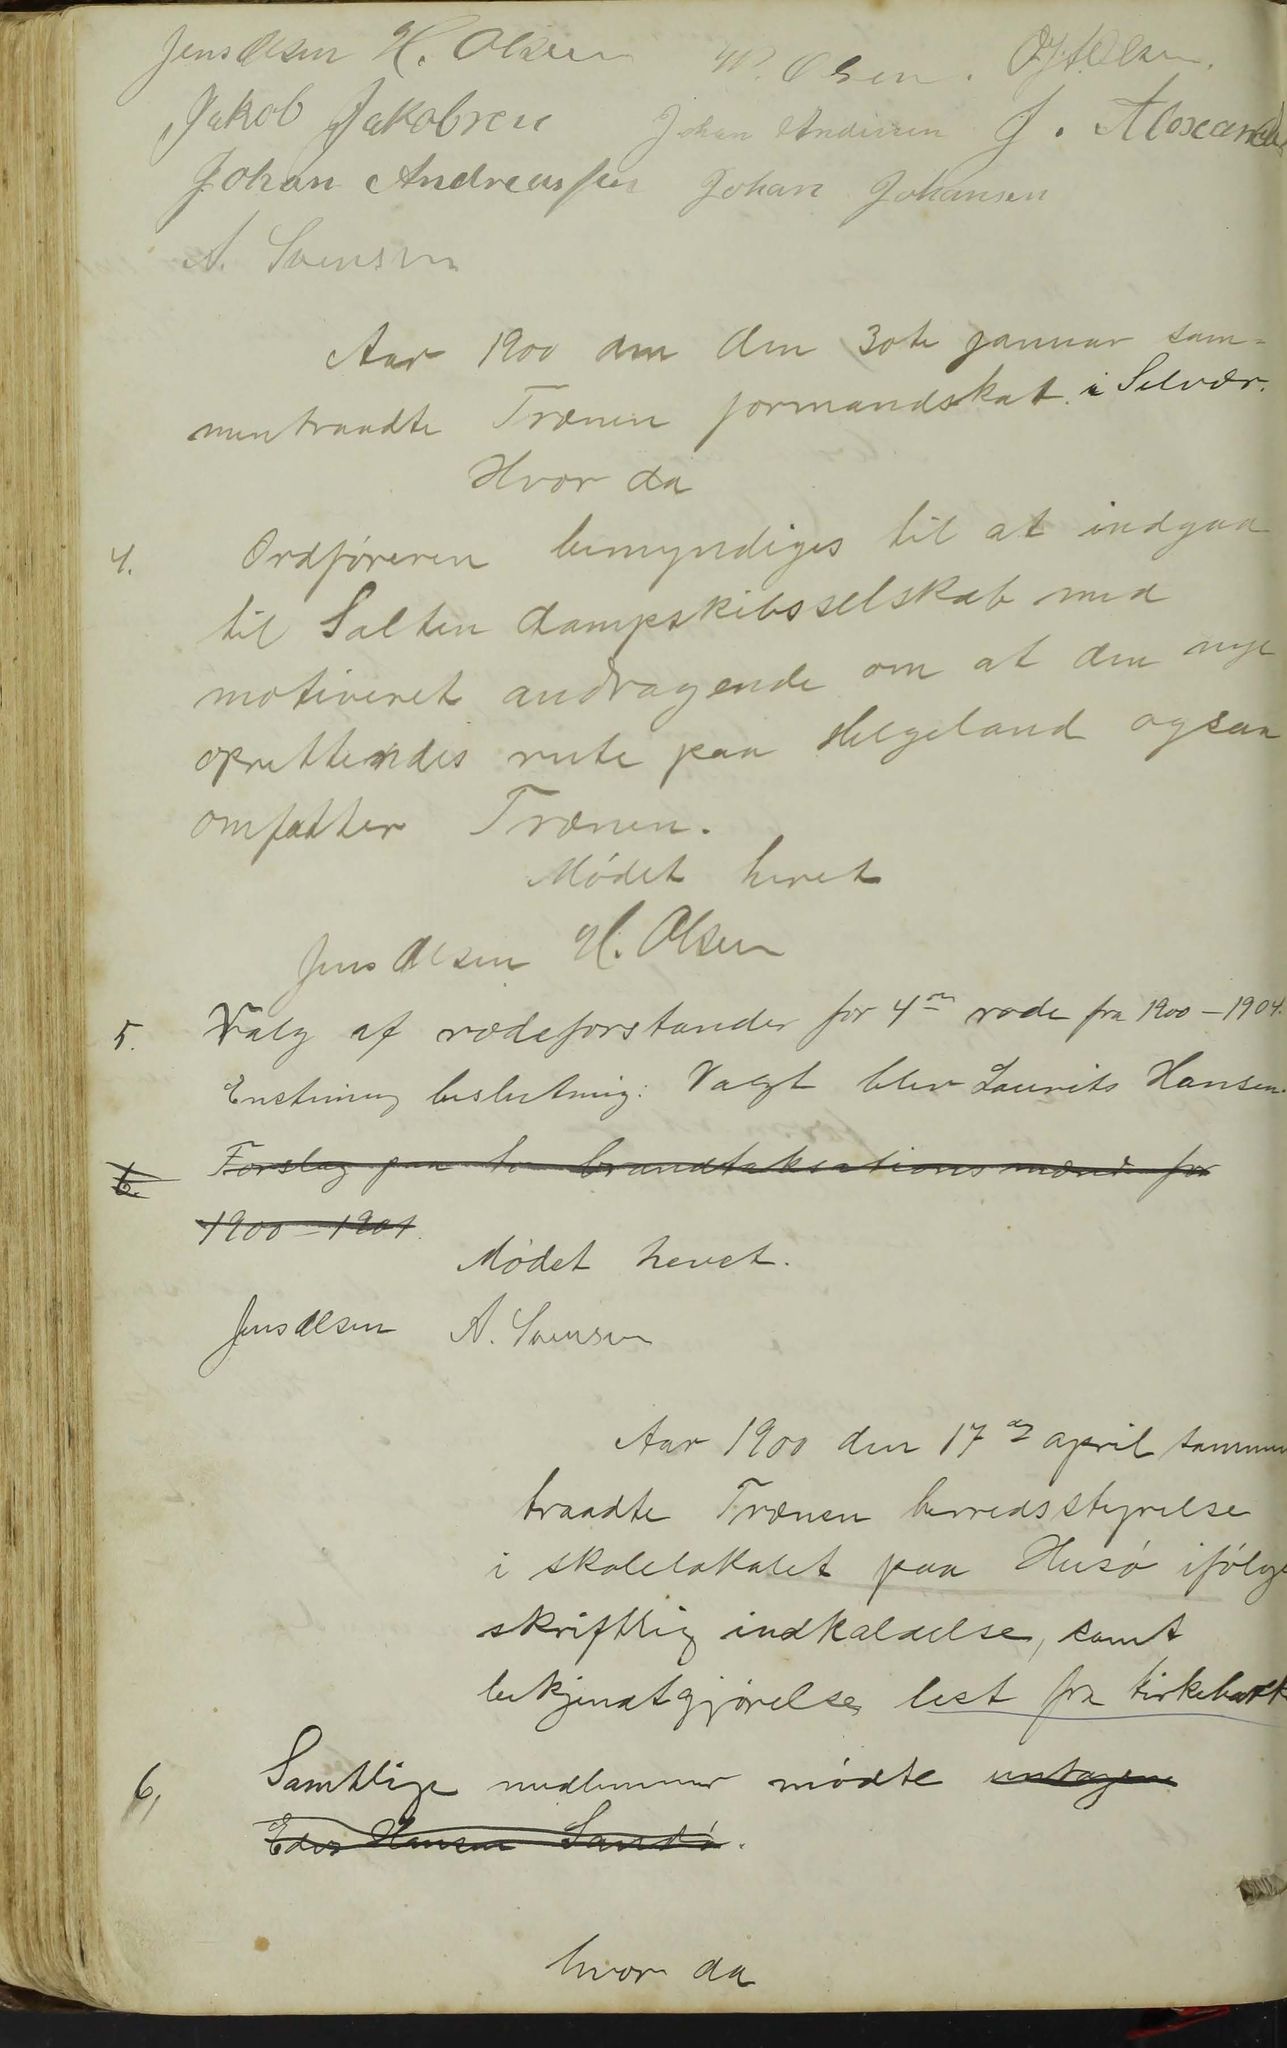 Jens Olsen H. Olsen W. Olsen. O. J. Olsen.
Jakob Jakobsen Johan Andersen J. Alexand
Johan Andreassen Johan Johansen
A. Svensen
Aar 1900 den 30te januar sam-
mentraadte Trænen formandskab i Selvær.
Hvor da
4. Ordføreren bemyndiges til at indgaa
til Salten dampskibsselskab med
motiveret andragende om at den nye
oprettendes rute paa Helgeland ogsaa
omfatter Trænen.
Mødet hevet
Jens Olsen H. Olsen
5. Valg af rodeforstander for 4de rode fra 1900 – 1904.
Enstemmig beslutning: Valgt blev Laurits Hansen.
6. Forslag paa to brandtaksationsmænd for
1900 – 1901.
Mødet hevet.
Jens Olsen A. Svensen
Aar 1900 den 17de april sammen
traadte Trænen herredsstyrelse
i skolelokalet paa Husø ifølge
skriftlig indkaldelse, samt
bekjendtgjørelse lest fra kirkebakk
6, Samtlige medlemmer mødte untagen
Hansen Sandø.
hvor da